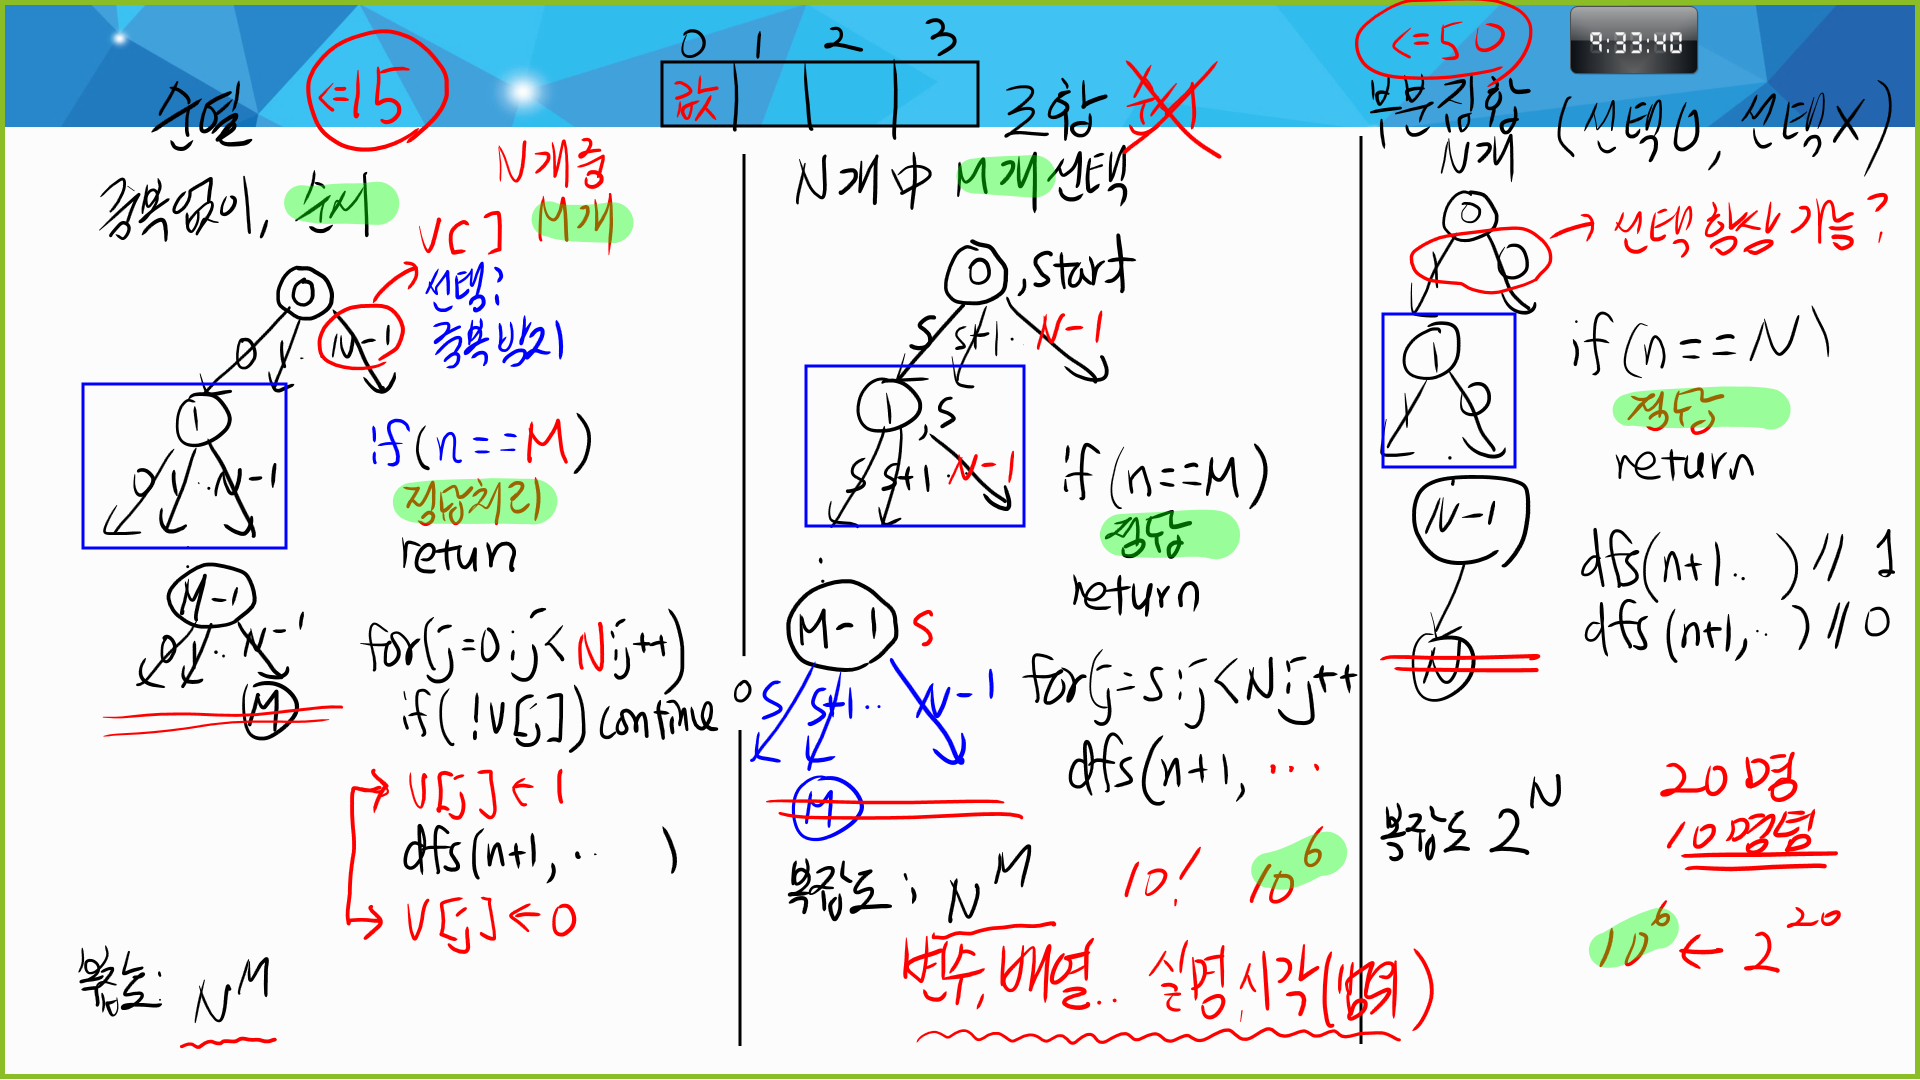 순열 <=15
중복없이, 순서
N개중
M개
V[ ]
선택;
중복방지
0
0 1 .. N-1
1
0 1 .. N-1
M-1
0 1 .. N-1
M
if(n==M)
정답처리
return
for(j=0;j<N;j++)
if(!V[j]) continue
V[j]←1
dfs(n+1, .. )
V[j]←0
복잡도: N^M
0 1 2 3
값
조합 순서
N개 中 M개 선택
0, start
S S+1.. N-1
1, S
S S+1.. N-1
M-1 S
S S+1.. N-1
M
if(n==M)
정답
return
for(j=s;j<N;j++
dfs(n+1, ...
복잡도: N^M 10! 10^6
변수, 배열.. 설명, 시각(범위)
<=50
9:33:40
부분집합 (선택O, 선택X)
N개
0
1 0
→ 선택 항상 가능?
1
1 0
N-1
N
if(n==N)
정답
return
dfs(n+1.. )// 1
dfs(n+1, ..)// 0
복잡도 2^N
20명
10명팀
10^6 ← 2^20